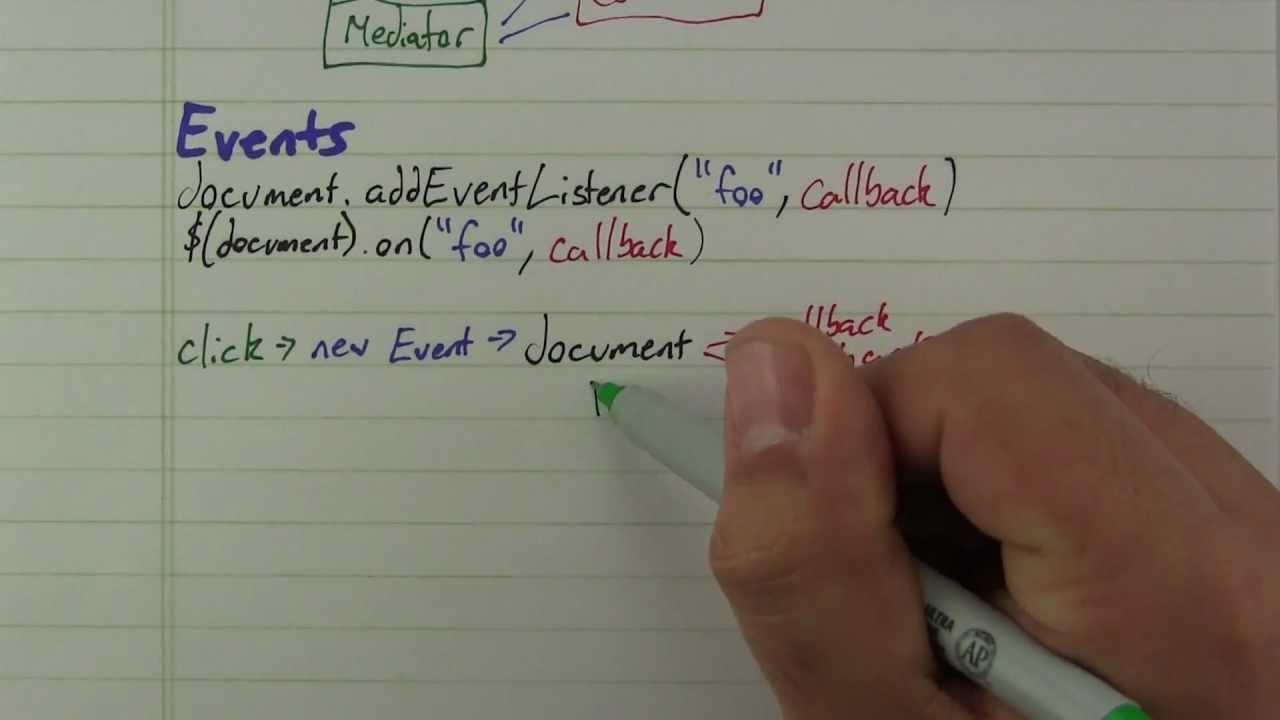 Mediator
Events
document.addEventListener("foo", callback)
$(document).on("foo", callback)
click → new Event → document
ULTRA
AP